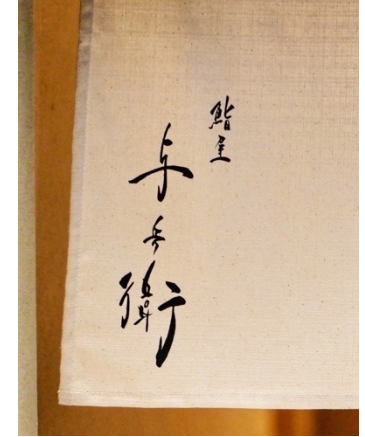 鮨屋
与兵衛